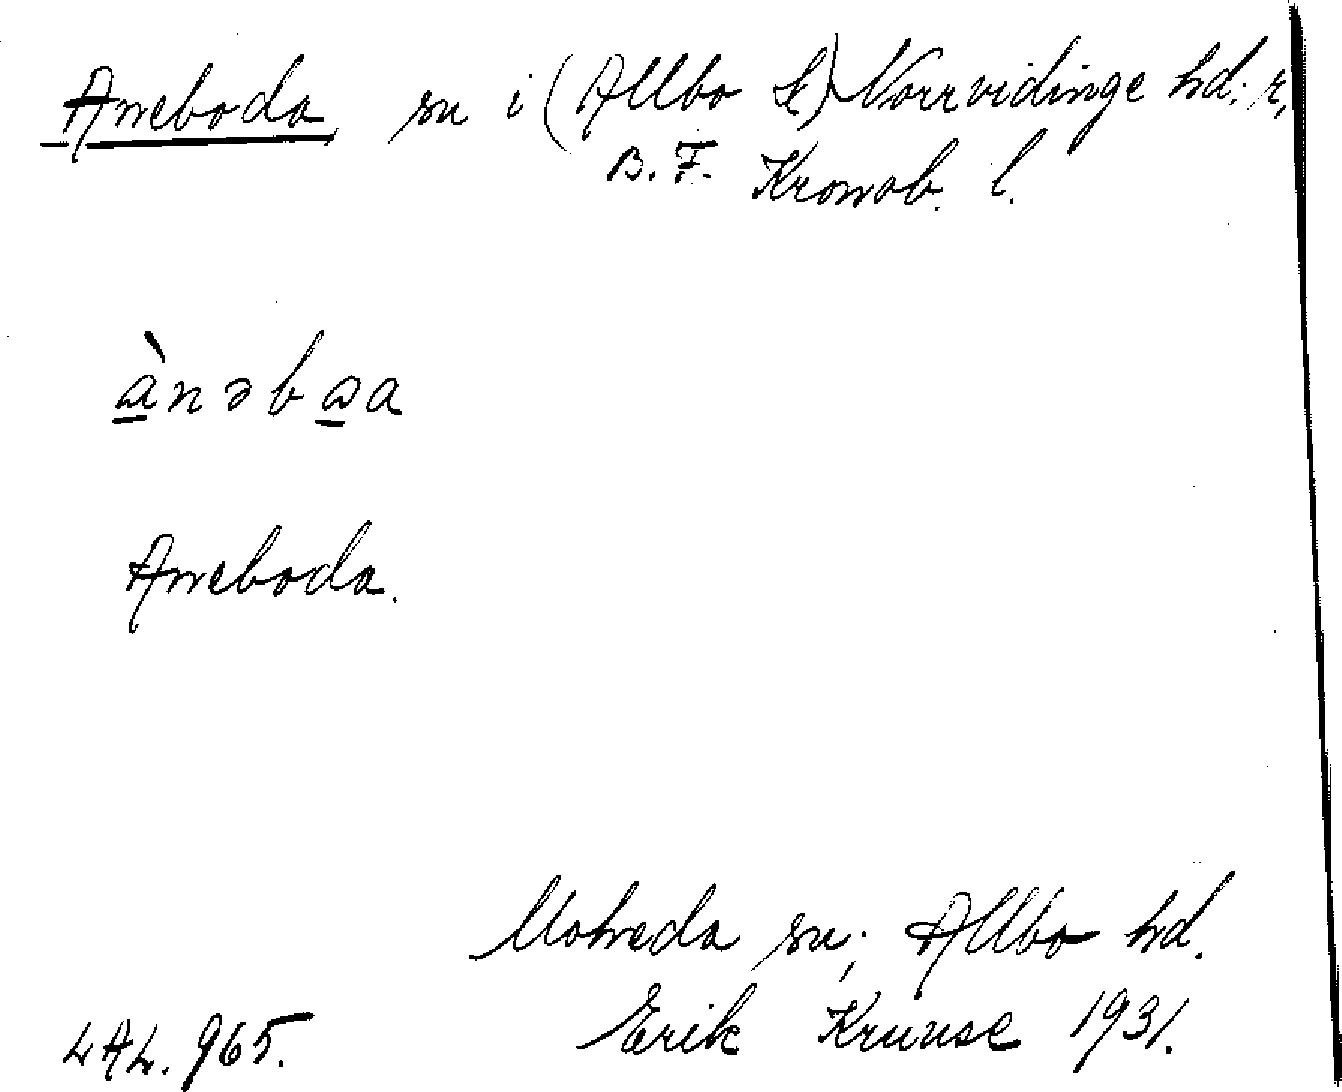 Aneboda sn i (Allbo h) Norrvidinge hd; r,
B. F. Kronob. l.
ànəbωa
Aneboda.
Moheda sn; Allbo hd.
LAL. 965. Erik Kruuse 1931.